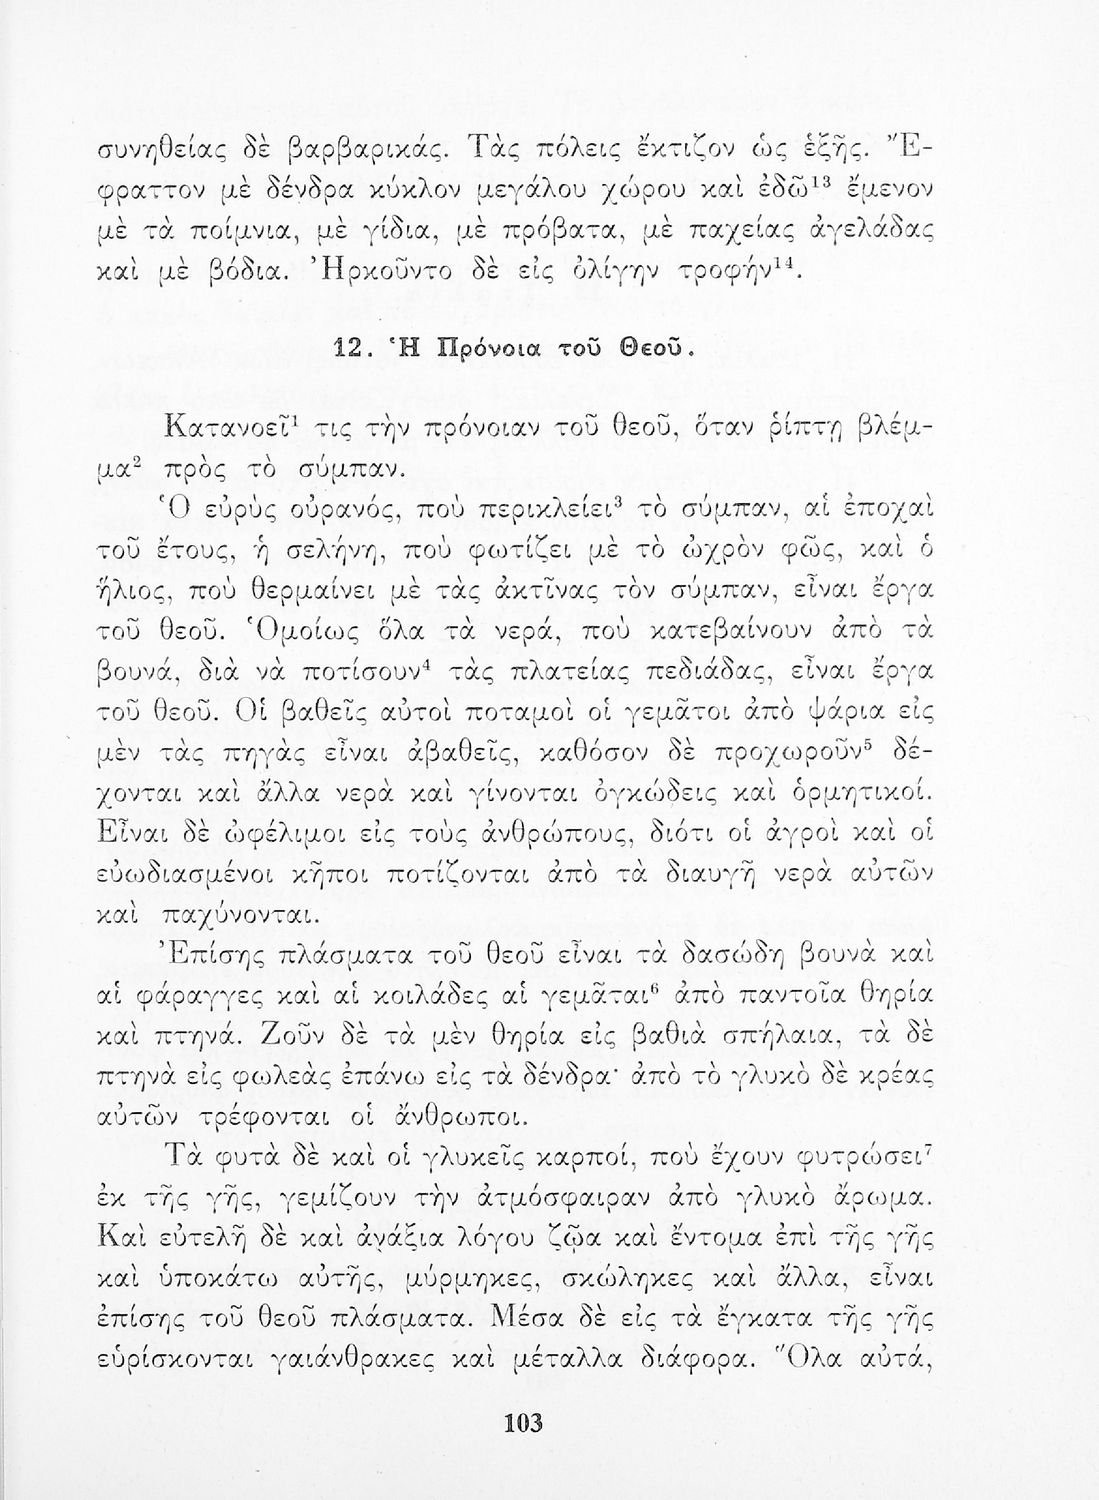 συνηθείας δὲ βαρβαρικάς. Τὰς πόλεις ἔκτιζον ὡς ἑξῆς. Ἔ-
φραττον μὲ δένδρα κύκλον μεγάλου χώρου καὶ ἐδῶ¹³ ἔμενον
μὲ τὰ ποίμνια, μὲ γίδια, μὲ πρόβατα, μὲ παχείας ἀγελάδας
καὶ μὲ βόδια. Ἠρκοῦντο δὲ εἰς ὀλίγην τροφήν¹⁴.
12. Ἡ Πρόνοια τοῦ Θεοῦ.
Κατανοεῖ¹ τις τὴν πρόνοιαν τοῦ θεοῦ, ὅταν ῥίπτῃ βλέμ-
μα² πρὸς τὸ σύμπαν.
Ὁ εὐρὺς οὐρανός, ποὺ περικλείει³ τὸ σύμπαν, αἱ ἐποχαὶ
τοῦ ἔτους, ἡ σελήνη, ποὺ φωτίζει μὲ τὸ ὠχρὸν φῶς, καὶ ὁ
ἥλιος, ποὺ θερμαίνει μὲ τὰς ἀκτῖνας τὸν σύμπαν, εἶναι ἔργα
τοῦ θεοῦ. Ὁμοίως ὅλα τὰ νερά, ποὺ κατεβαίνουν ἀπὸ τὰ
βουνά, διὰ νὰ ποτίσουν⁴ τὰς πλατείας πεδιάδας, εἶναι ἔργα
τοῦ θεοῦ. Οἱ βαθεῖς αὐτοὶ ποταμοὶ οἱ γεμᾶτοι ἀπὸ ψάρια εἰς
μὲν τὰς πηγὰς εἶναι ἀβαθεῖς, καθόσον δὲ προχωροῦν⁵ δέ-
χονται καὶ ἄλλα νερὰ καὶ γίνονται ὀγκώδεις καὶ ὁρμητικοί.
Εἶναι δὲ ὠφέλιμοι εἰς τοὺς ἀνθρώπους, διότι οἱ ἀγροὶ καὶ οἱ
εὐωδιασμένοι κῆποι ποτίζονται ἀπὸ τὰ διαυγῆ νερὰ αὐτῶν
καὶ παχύνονται.
Ἐπίσης πλάσματα τοῦ θεοῦ εἶναι τὰ δασώδη βουνὰ καὶ
αἱ φάραγγες καὶ αἱ κοιλάδες αἱ γεμᾶται⁶ ἀπὸ παντοῖα θηρία
καὶ πτηνά. Ζοῦν δὲ τὰ μὲν θηρία εἰς βαθιὰ σπήλαια, τὰ δὲ
πτηνὰ εἰς φωλεὰς ἐπάνω εἰς τὰ δένδρα· ἀπὸ τὸ γλυκὸ δὲ κρέας
αὐτῶν τρέφονται οἱ ἄνθρωποι.
Τὰ φυτὰ δὲ καὶ οἱ γλυκεῖς καρποί, ποὺ ἔχουν φυτρώσει⁷
ἐκ τῆς γῆς, γεμίζουν τὴν ἀτμόσφαιραν ἀπὸ γλυκὸ ἄρωμα.
Καὶ εὐτελῆ δὲ καὶ ἀνάξια λόγου ζῷα καὶ ἔντομα ἐπὶ τῆς γῆς
καὶ ὑποκάτω αὐτῆς, μύρμηκες, σκώληκες καὶ ἄλλα, εἶναι
ἐπίσης τοῦ θεοῦ πλάσματα. Μέσα δὲ εἰς τὰ ἔγκατα τῆς γῆς
εὑρίσκονται γαιάνθρακες καὶ μέταλλα διάφορα. Ὅλα αὐτά,
103